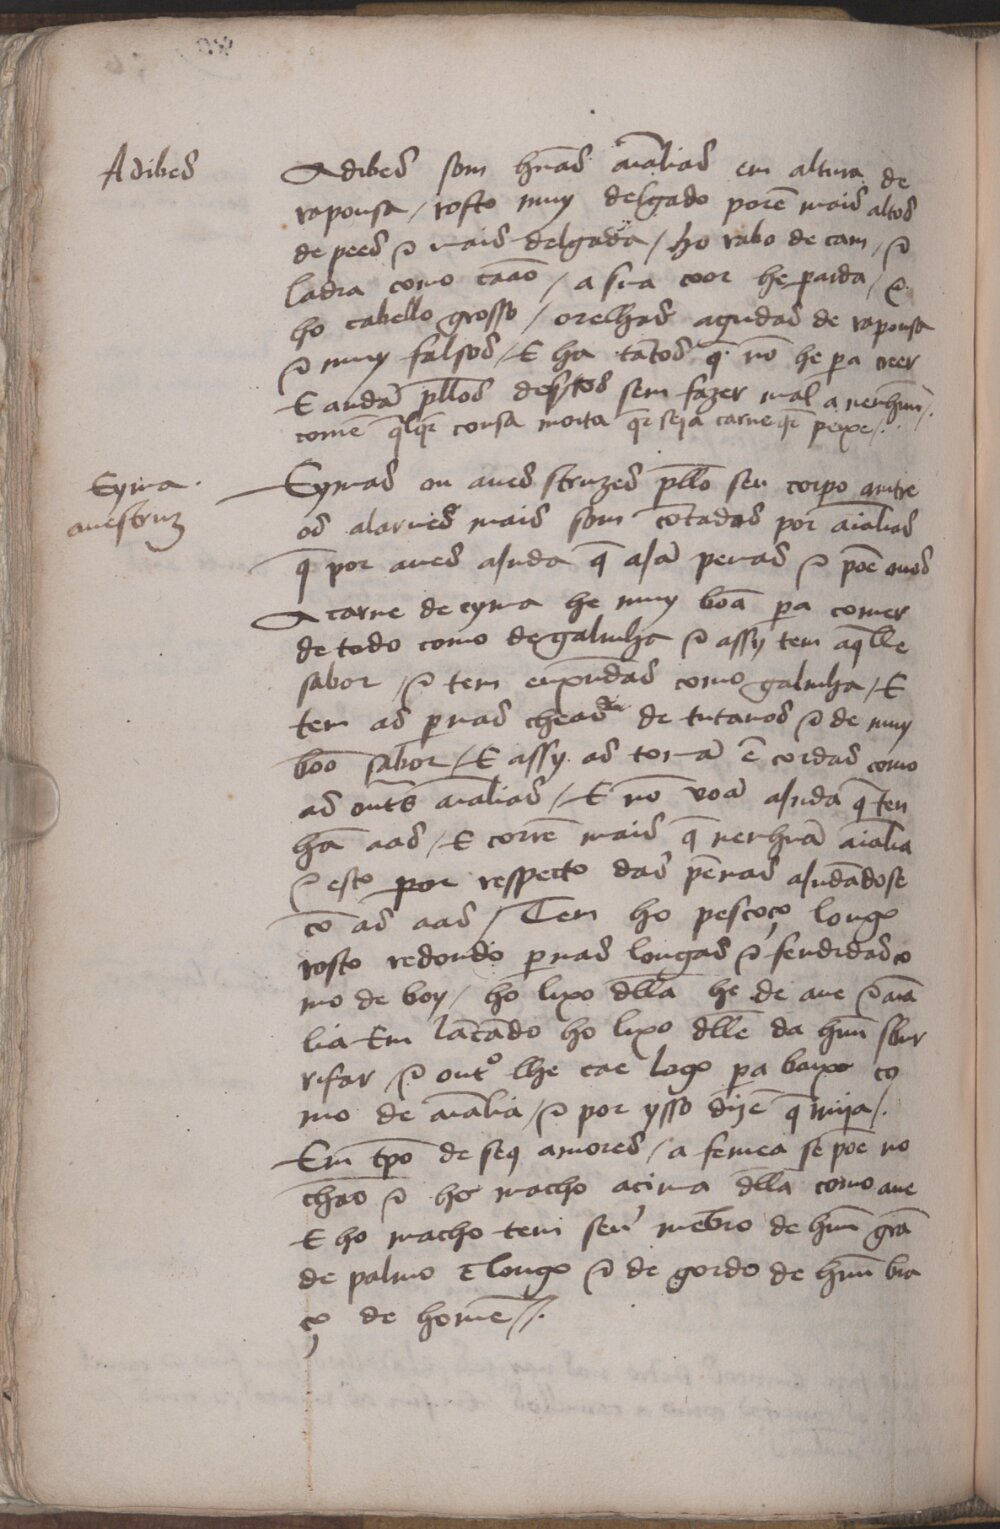 Adibes
Adibes som hu͂as a͂ialias em altura de
raposa / rosto muy delgado pore͂ mais altos
de pees & mais delgada / ho rabo de cam / &
ladra como caão / a sua coor he parda / &
ho cabello grosso / orelhas agudas de raposa
& muy falsos / E ha ta͂tos q͂ no͂ he pa creer
E anda͂ p͂llos desertos sem fazer mal a nenhuu͂ /.
come͂ q͂lq͂r cousa morta q͂r seja carne q͂r peixe /.
Eyma.
avestruz
Eymas ou aves struzes p͂llo seu corpo antre
os alarves mais som co͂tadas por a͂ialias
q͂ por aves ajnda q͂ aja͂ penas & põe ovos
A carne de eyma he muy bõa pa comer
de todo como de galinha & assy tem aq͂lle
sabor / & tem enxu͂dias como galinha / E
tem as pernas cheas de tutanos & de muy
boo͂ sabor / E assy as toma͂ e͂ cordas como
as out͂s a͂ialias / E no͂ voa͂ ajnda q͂ ten
ha͂ aas / E corre͂ mais q͂ nenhu͂a a͂ialia
& esto por respecto das pe͂nas ajuda͂dose
co͂ as aas / Tem ho pescoço longo
rosto redondo pernas longas & fendidas co
mo de boy / ho lixo d͂lla he de ave & a͂ia
lia Em la͂ca͂do ho lixo d͂lle da huu͂ sbor
rifar & outo lhe cae logo pa baixo co
mo de a͂ialia / & por ysso dize͂ q͂ mija /.
Em tp͂o de seus amores / a femea se põe no
chão & ho macho acima d͂lla como ave
E ho macho tem seu me͂bro de huu͂ gra͂
de palmo e͂ longo & de gordo de huu͂ bra
ço de home͂ //.